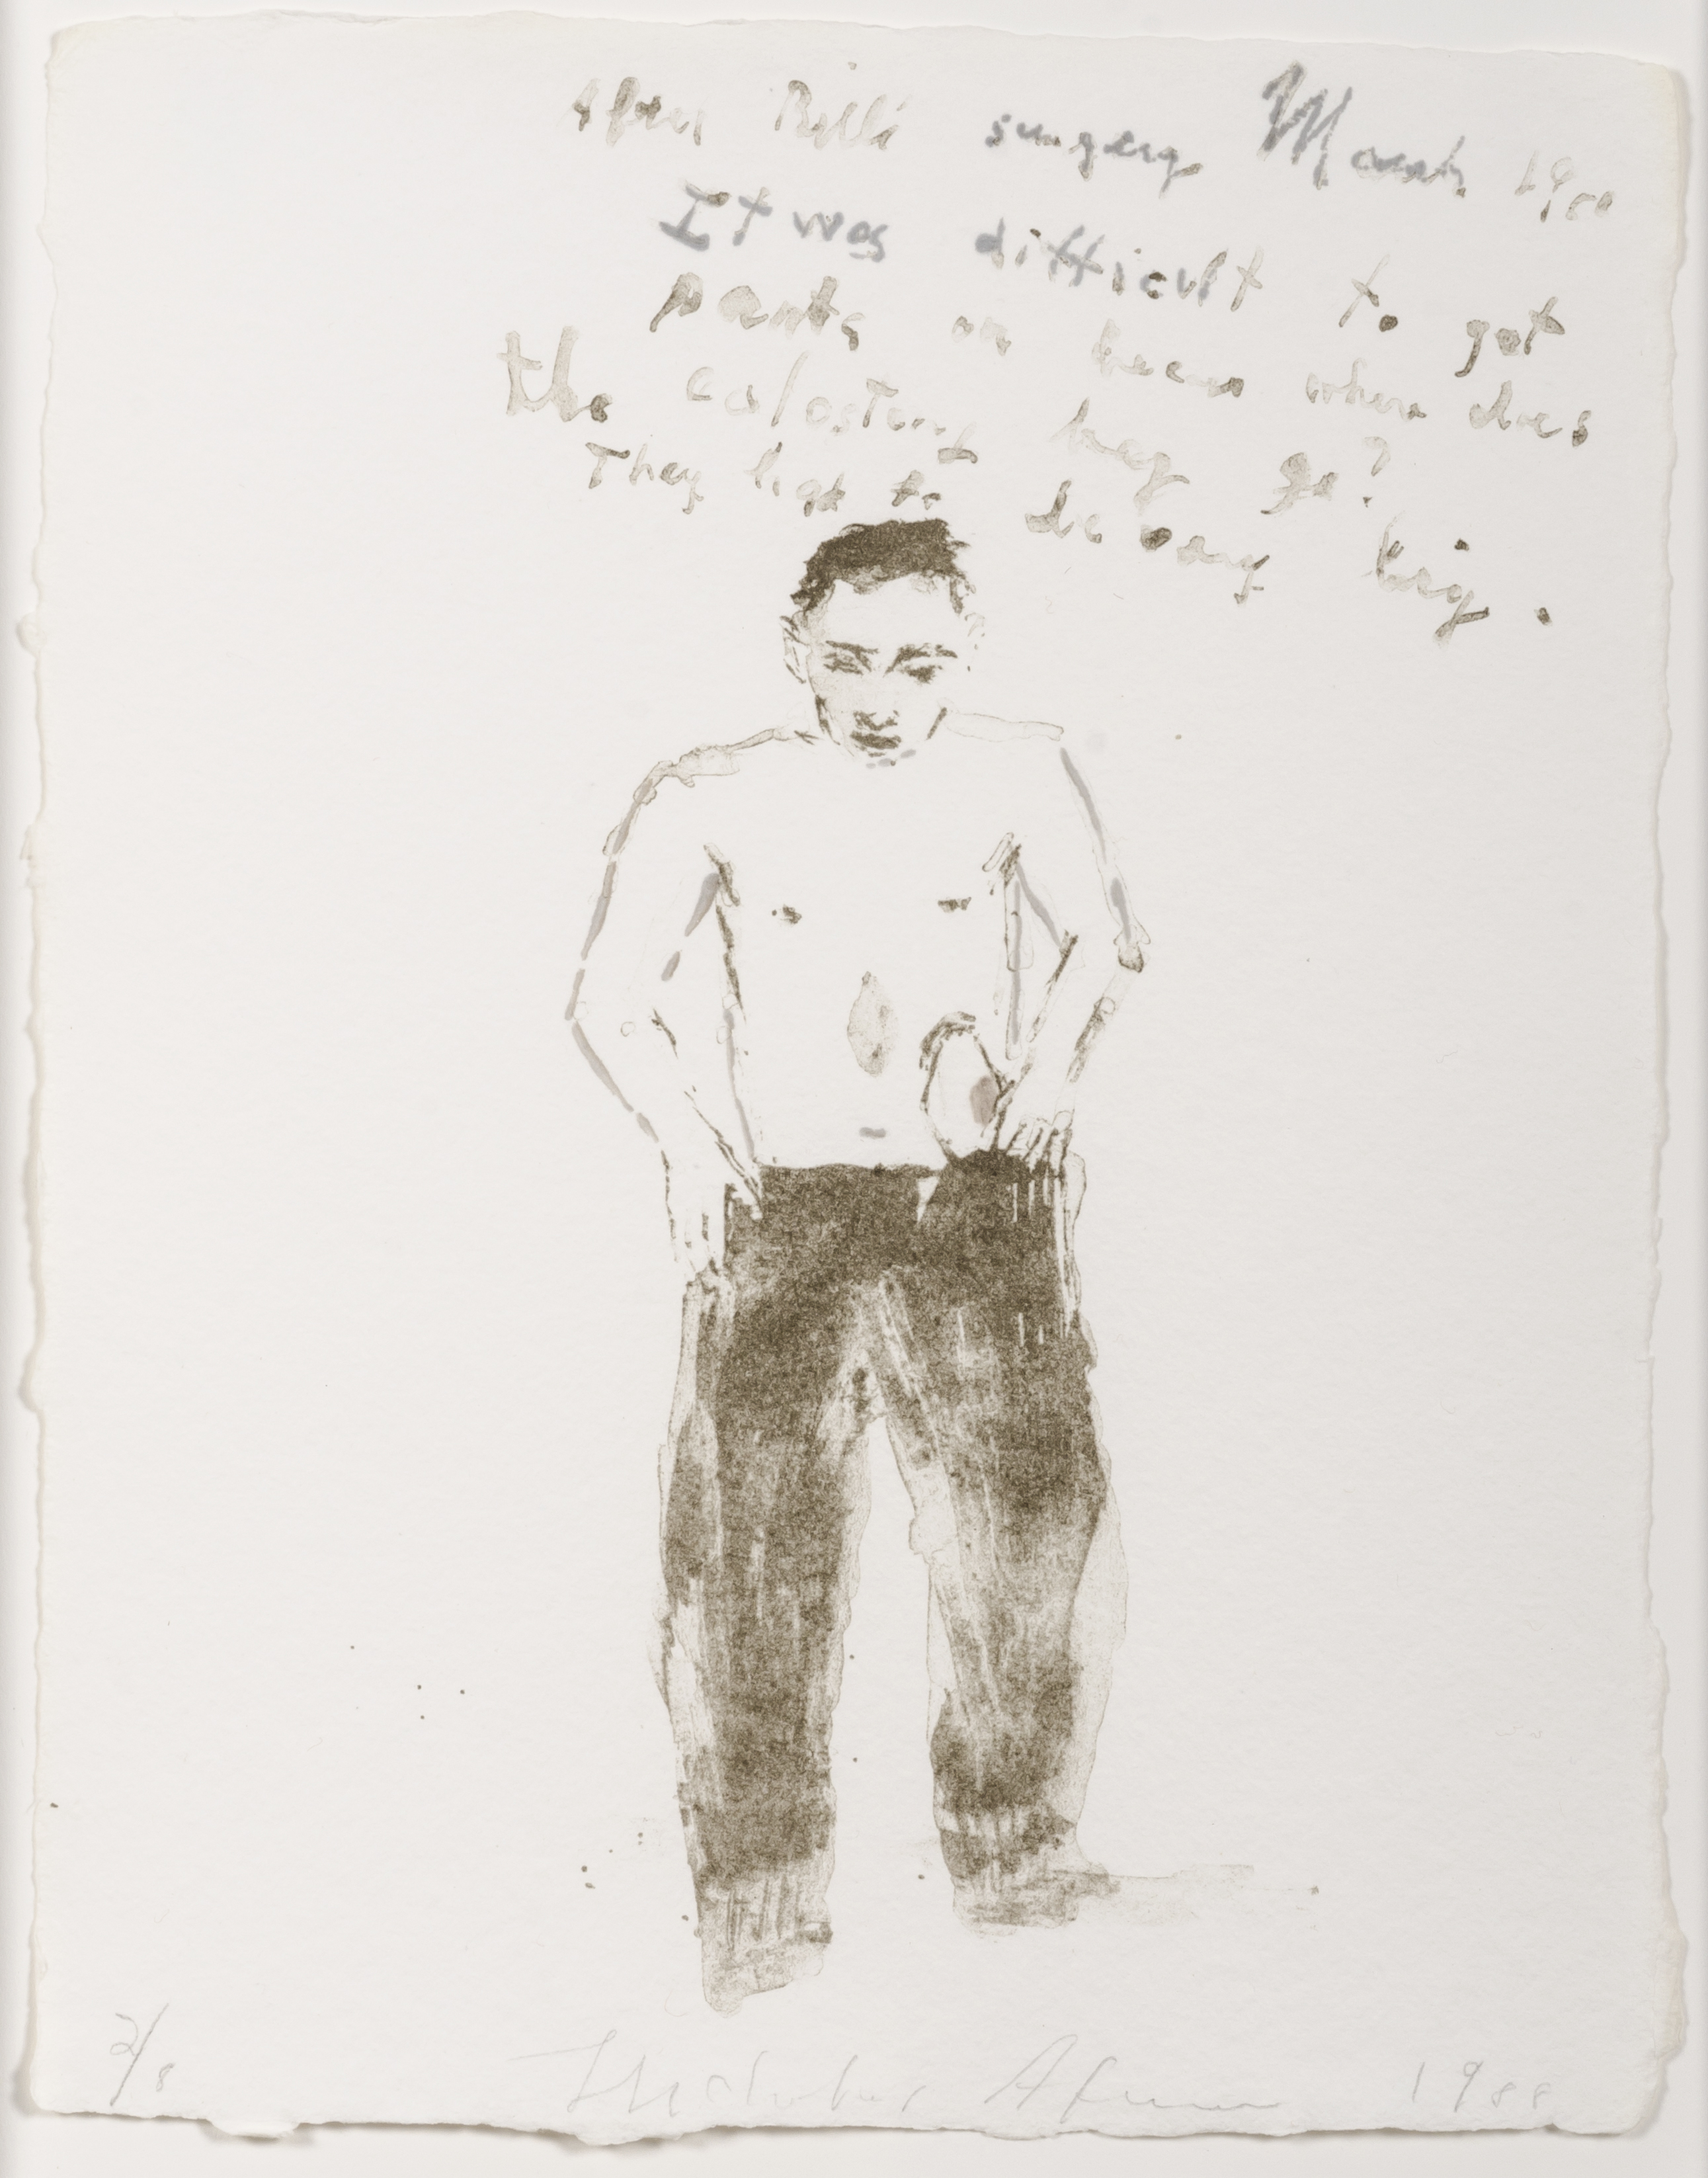 After Bill's surgery March 1988
It was difficult to get
pants on because where does
the colostomy bag go?
They to be very big.
2/8 Nicholas Africano 1988